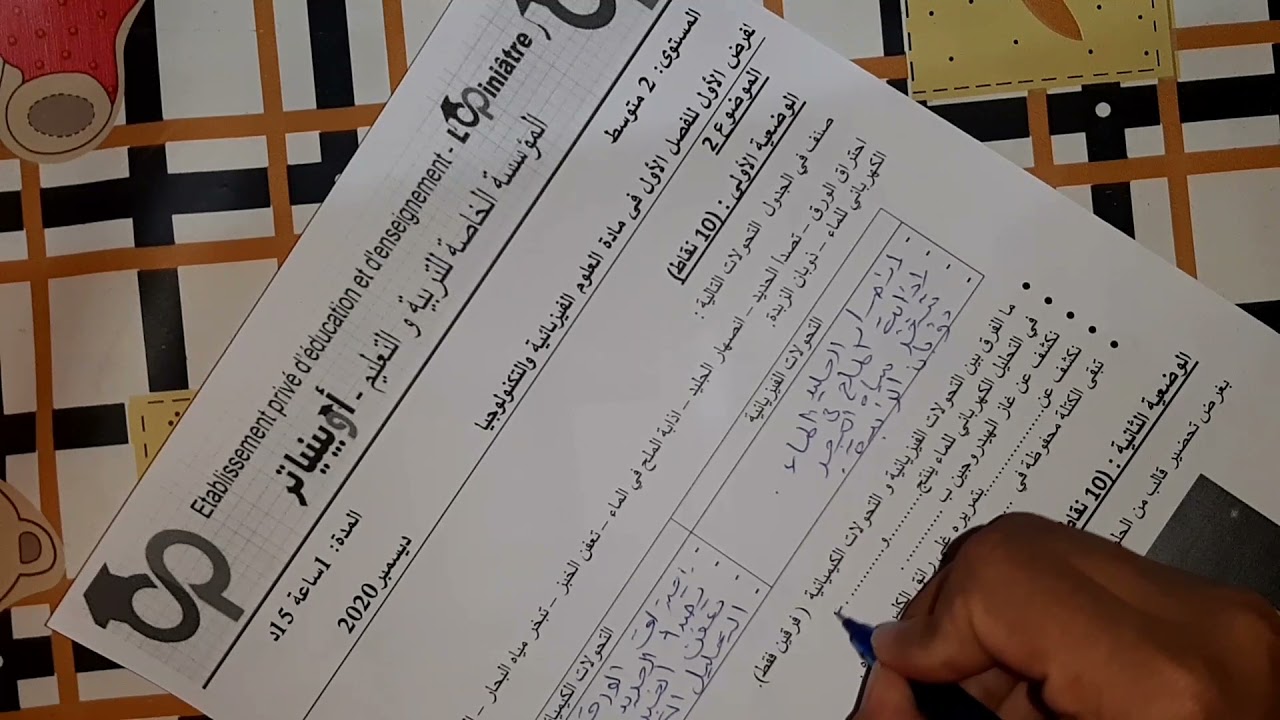 Etablissement privé d'éducation et d'enseignement - L'Opiniâtre
المؤسسة الخاصة للتربية و التعليم - أوبينياتر
المستوى: 2 متوسط
المدة: 1ساعة 15د
ديسمبر 2020
الفرض الأول للفصل الأول في مادة العلوم الفيزيائية والتكنولوجيا
الموضوع 2
الوضعية الأولى : (10 نقاط)
صنف في الجدول التحولات التالية :
احتراق الورق – تصدأ الحديد – انصهار الجليد – اذابة الملح في الماء – تعفن الخبز – تبخر مياه البحار –
الكهربائي للماء – ذوبان الزبدة.
التحولات الفيزيائية
التحولات الكيميائية
- انصهار الجليد
- اذابة الملح في الماء
- تبخر مياه البحر
- ذوبان الزبدة
- احتراق الورق
- تصدأ الحديد
- تعفن الخبز
- التحليل
ما الفرق بين التحولات الفيزيائية و التحولات الكيميائية ( فرقين فقط).
في التحليل الكهربائي للماء ينتج ............و............
نكشف عن غاز الهيدروجين ب ............
نكشف عن............بتمريره على رائق الكلس
تبقى الكتلة محفوظة في ......
الوضعية الثانية : (10 نقاط
بغرض تحضير قالب من